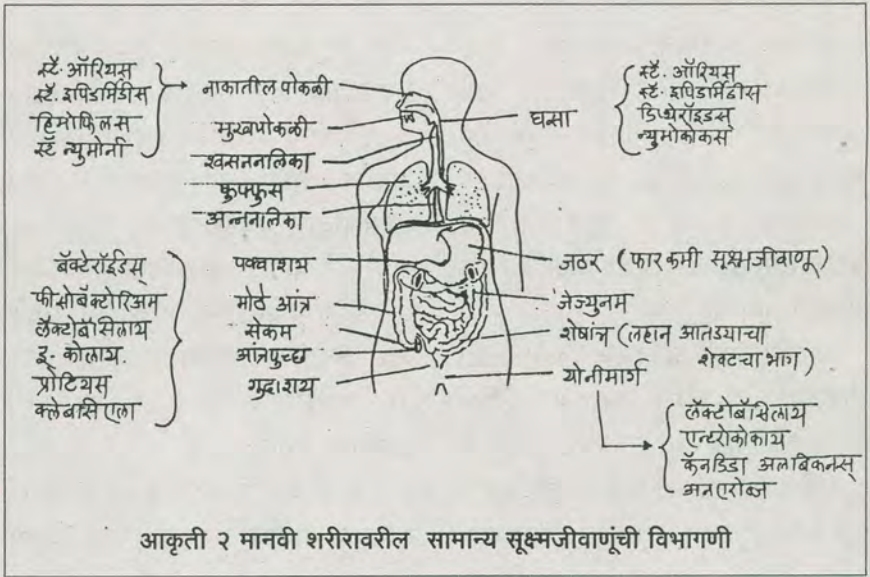 स्टै. ऑरियस
स्टै. इपिडर्मिडीस
हिमोफिलस
स्टॅ न्युमोनी
नाकातील पोकळी
मुखपोकळी
श्वसननलिका
फुफ्फुस
अन्ननलिका
घसा
स्टै. ऑरियस
स्टै. इपिडर्मिडीस
डिप्थेरॉइडस्
न्युमोकोकस
बॅक्टेरॉईडस्
फीसोबॅक्टोरिअम
लॅक्टोबॅसिलाय
इ. कोलाय.
प्रोटियस
क्लेबसिएला
पक्वाशय
मोठे आंत्र
सेकम
आंत्रपुच्छ
गुदाशय
जठर (फार कमी सूक्ष्मजीवाणू)
जेज्युनम
शेषांत्र (लहान आतडयाचा
शेवटचा भाग)
योनीमार्ग
लॅक्टोबॅसिलाय
एन्टरोकोकाय
कॅनडिडा अलबिकनस्
अनएरोब्ज
आकृती २ मानवी शरीरावरील सामान्य सूक्ष्मजीवाणूंची विभागणी